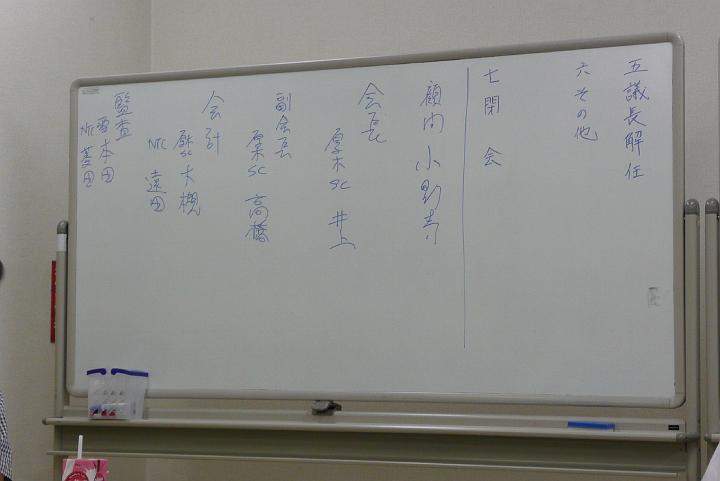 五 議長解任
六 その他
七 閉会
顧問 小野寺
会長
厚木SC 井上
副会長
厚木SC 高橋
会計
厚木SC 大槻
NTC 遠田
監査
本田
NTC 菱田